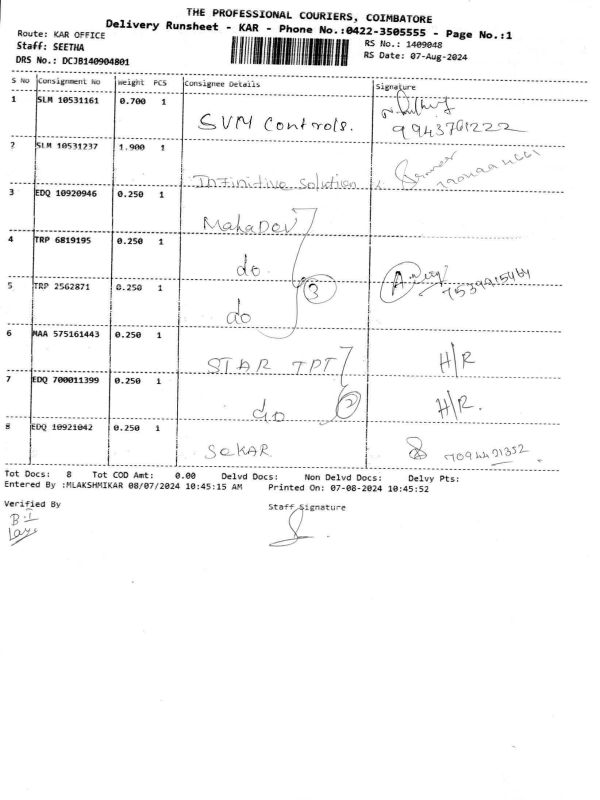 THE PROFESSIONAL COURIERS, COIMBATORE
Delivery Runsheet - KAR - Phone No.:0422-3505555 - Page No.:1
Route: KAR OFFICE
RS No.: 1409048
Staff: SEETHA
RS Date: 07-Aug-2024
DRS No.: DCJB140904801
S No Consignment No Weight PCS Consignee Details Signature
1 SLM 10531161 0.700 1 SVM Controls. 9943761222
2 SLM 10531237 1.900 1 Infinitive Solution
3 EDQ 10920946 0.250 1 MahaDev
4 TRP 6819195 0.250 1 do
5 TRP 2562871 0.250 1 do 3
6 MAA 575161443 0.250 1 STAR TPT H/R
7 EDQ 700011399 0.250 1 do 2 H/R.
8 EDQ 10921042 0.250 1 SEKAR
Tot Docs: 8 Tot COD Amt: 0.00 Delvd Docs: Non Delvd Docs: Delvy Pts:
Entered By :MLAKSHMIKAR 08/07/2024 10:45:15 AM Printed On: 07-08-2024 10:45:52
Verified By Staff Signature
B.I